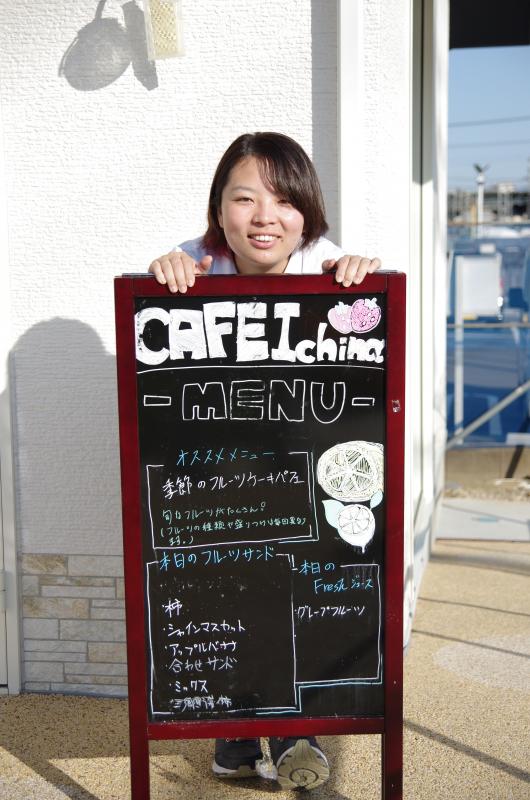 CAFE Ichina
-MENU-
オススメメニュー
季節のフルーツケーキパフェ
旬なフルーツがたくさん!
(フルーツの種類や盛りつけは毎日異なり
ます。)
本日のフルーツサンド
・柿
・シャインマスカット
・アップルバナナ
・合わせサンド
・ミックス
本日の
Fresh ジュース
・グレープフルーツ